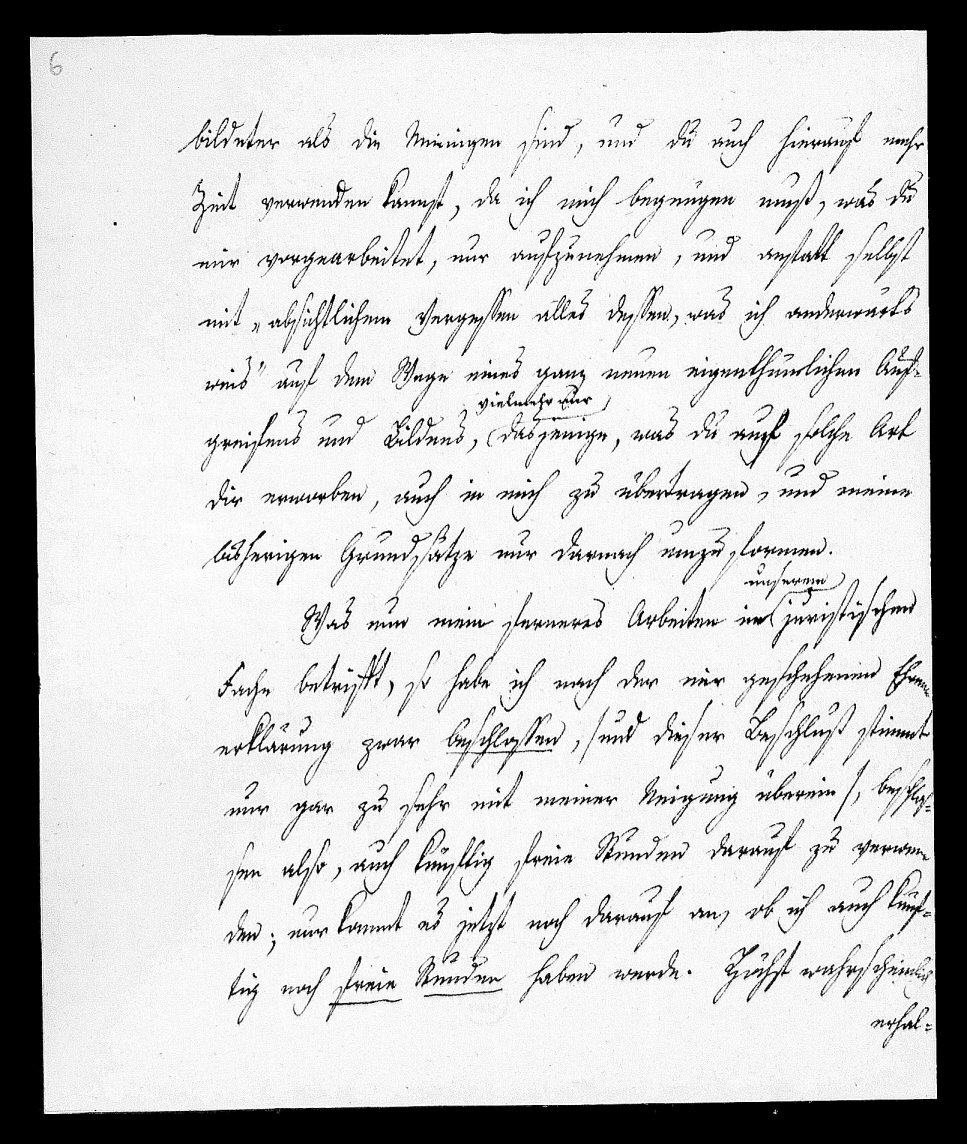 6
bildeter als die Meinigen sind, und du auch hierauf mehr
Zeit verwenden kannst, da ich mich begnügen muß, was du
mir vorgearbeitet, nur aufzunehmen, und anstatt selbst
mit „absichtlichem Vergessen alles dessen, was ich anderwärts
weis" auf dem Wege eines ganz neuen eigenthümlichen Auf-
vielmehr nur
greifens und Bildens, dasjenige, was du auf solche Art
dir erworben, auch in mich zu übertragen, und meine
bisherigen Grundsätze nur darnach umzuformen.
unserem
Was nun mein ferneres Arbeiten im juristischen
Fache betrifft, so habe ich nach der mir geschehenen Ehren-
erklärung zwar beschlossen, /und dieser Beschluß stimmt
nur gar zu sehr mit meiner Neigung überein/, beschlos-
sen also, auch künftig freie Stunden darauf zu verwen-
den; nur kommt es jetzt noch darauf an, ob ich auch künf-
tig noch freie Stunden haben werde. Höchst wahrscheinlich
erhal-